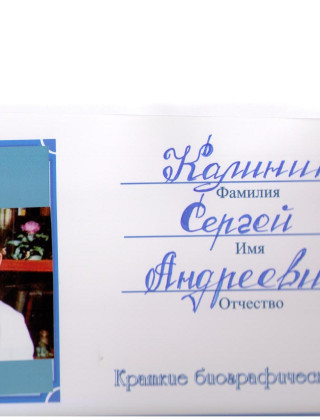 Калинин
Фамилия
Сергей
Имя
Андрееви
Отчество
Краткие биографическ